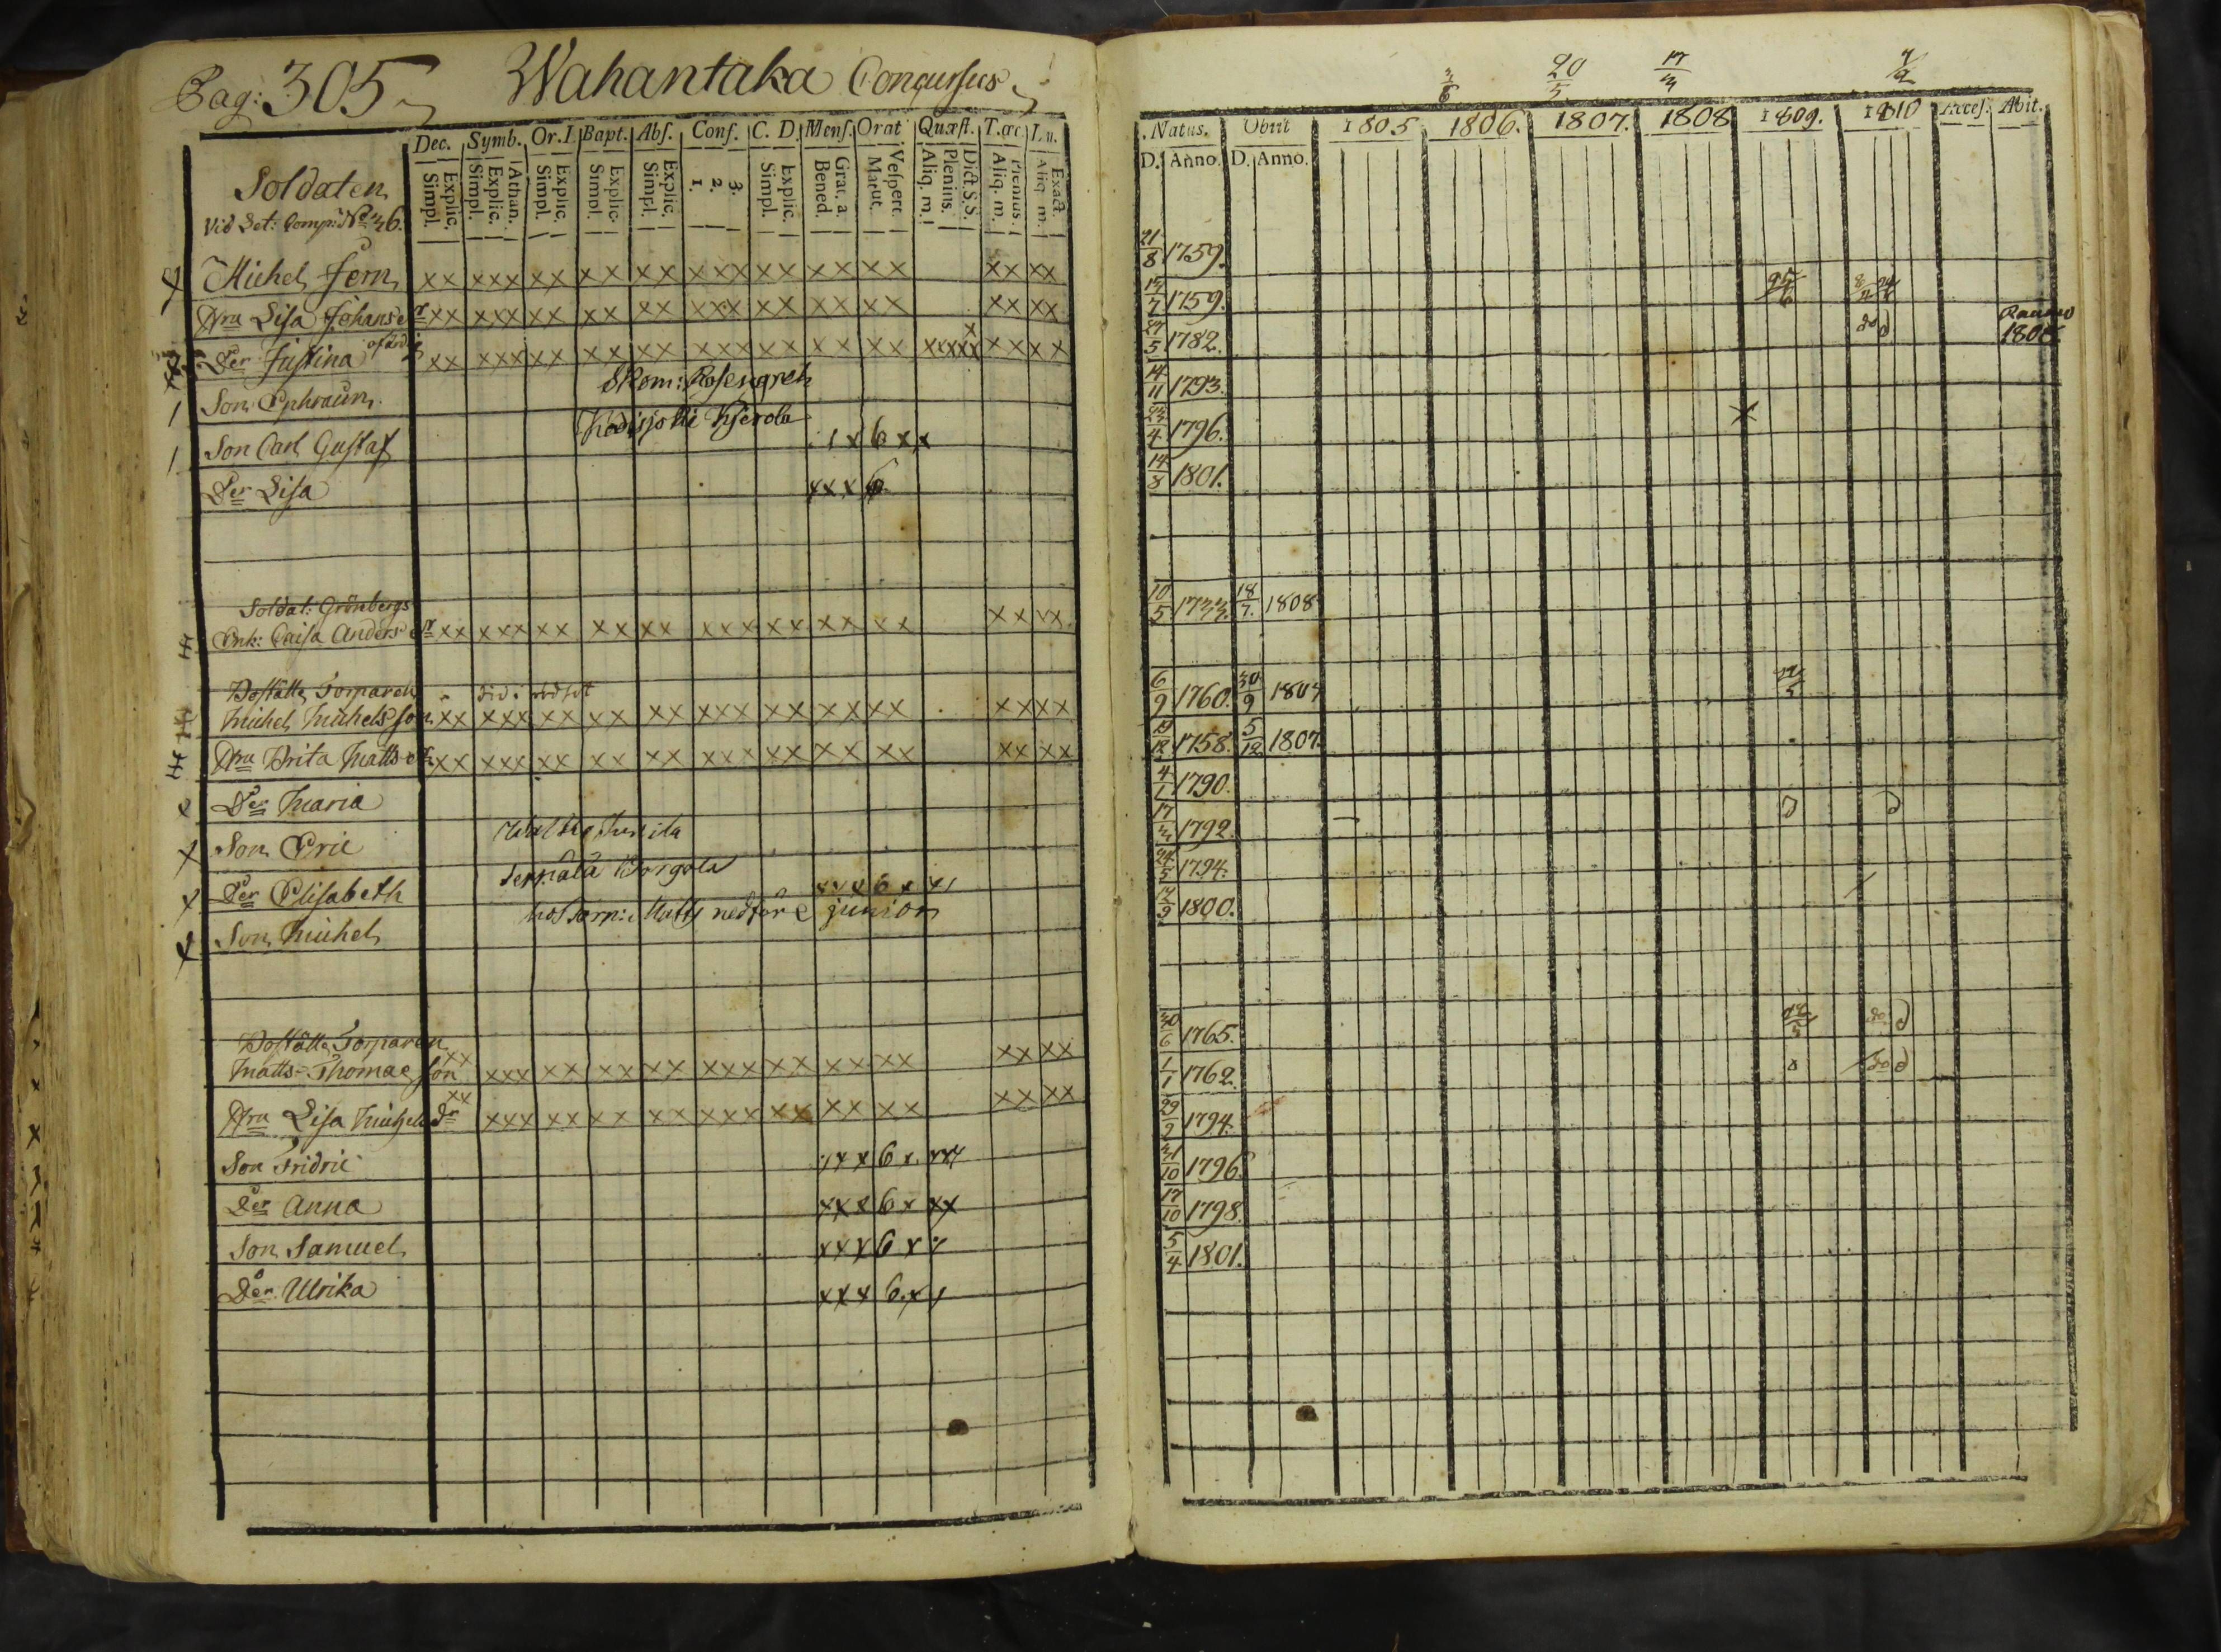 Pag: 305 Wahantaka Concursus
Dec. Symb. Or. I. Bapt. Abs. Conf. C. D. Mens. Orat Quæst. T.œc
Explic. Simpl. Athan. Explic. Simpl. Explic. Simpl. Explic. Simpl. Explic. Simpl. 3. 2. 1. Explic. Simpl. Grat. a. Bened. Vespert. Matut. Dict. S.S. Plenius. Aliq. m. Plenius. Aliq. m. Exact. Aliq. m.
Soldaten
Vid Comp: No 36.
Michel Fern xx xxx xx xx xx xxx xx xx xx xx xx
Hru Lisa Johansdr xx xxx xx xx xx xxx xx xx xx xx xx
Der Justina xx xxx xx xx xx xxx xx xx xx xxxxx xx xx
Skom: Rosengren
Son Ephraim
Son Carl Gustaf 1 x 6 x x
Der Lisa x x x 6
Soldat: Grönbergs
Enk: Caisa Anders dr xx xxx xx xx xx xxx xx xx xx xx xx
Bostälts Torparen
Michel Michelsson xx xxx xx xx xx xxx xx xx xx xx xx
Hru Brita Matts dr xx xxx xx xx xx xxx xx xx xx xx xx
Der Maria
Son Eric
Der Elisabeth x x x 6 x x 1
Son Michel
Bostälts Torparen
Matts Thomasson xx xxx xx xx xx xxx xx xx xx xx xx
Hru Lisa Michels dr xx xxx xx xx xx xxx xx xx xx xx xx
Son Fridric x x x 6 x x x x
Der Anna x x x 6 x x x
Son Samuel x x x 6 x x
Der Ulrika x x x 6 x 1
3/6 20/5 17/3
Natus. Obiit 1805. 1806. 1807. 1808 1809. 1810 Acces. Abit.
D. Anno. D. Anno.
21/8 1759.
1759. 25/6
5 1782. do d 1808
14/11 1793.
23/4 1796. x
14/8 1801.
10/5 1733. 18/7. 1808
6/9 1760. 30/9 1807
1758. 5/12 1807.
4/1 1790.
17/3 1792.
24/5 1794.
1800.
30/6 1765. do d
1/1 1762. do d
29/9 1794.
31/10 1796.
17/10 1798.
5/4 1801.